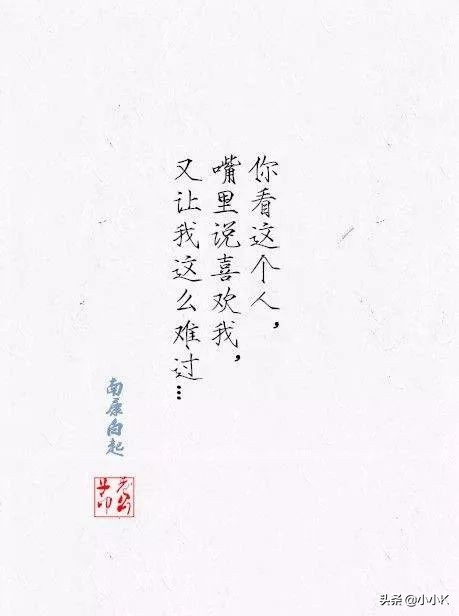 你看这个人，
嘴里说喜欢我，
又让我这么难过…
南康白起
头条@小小K